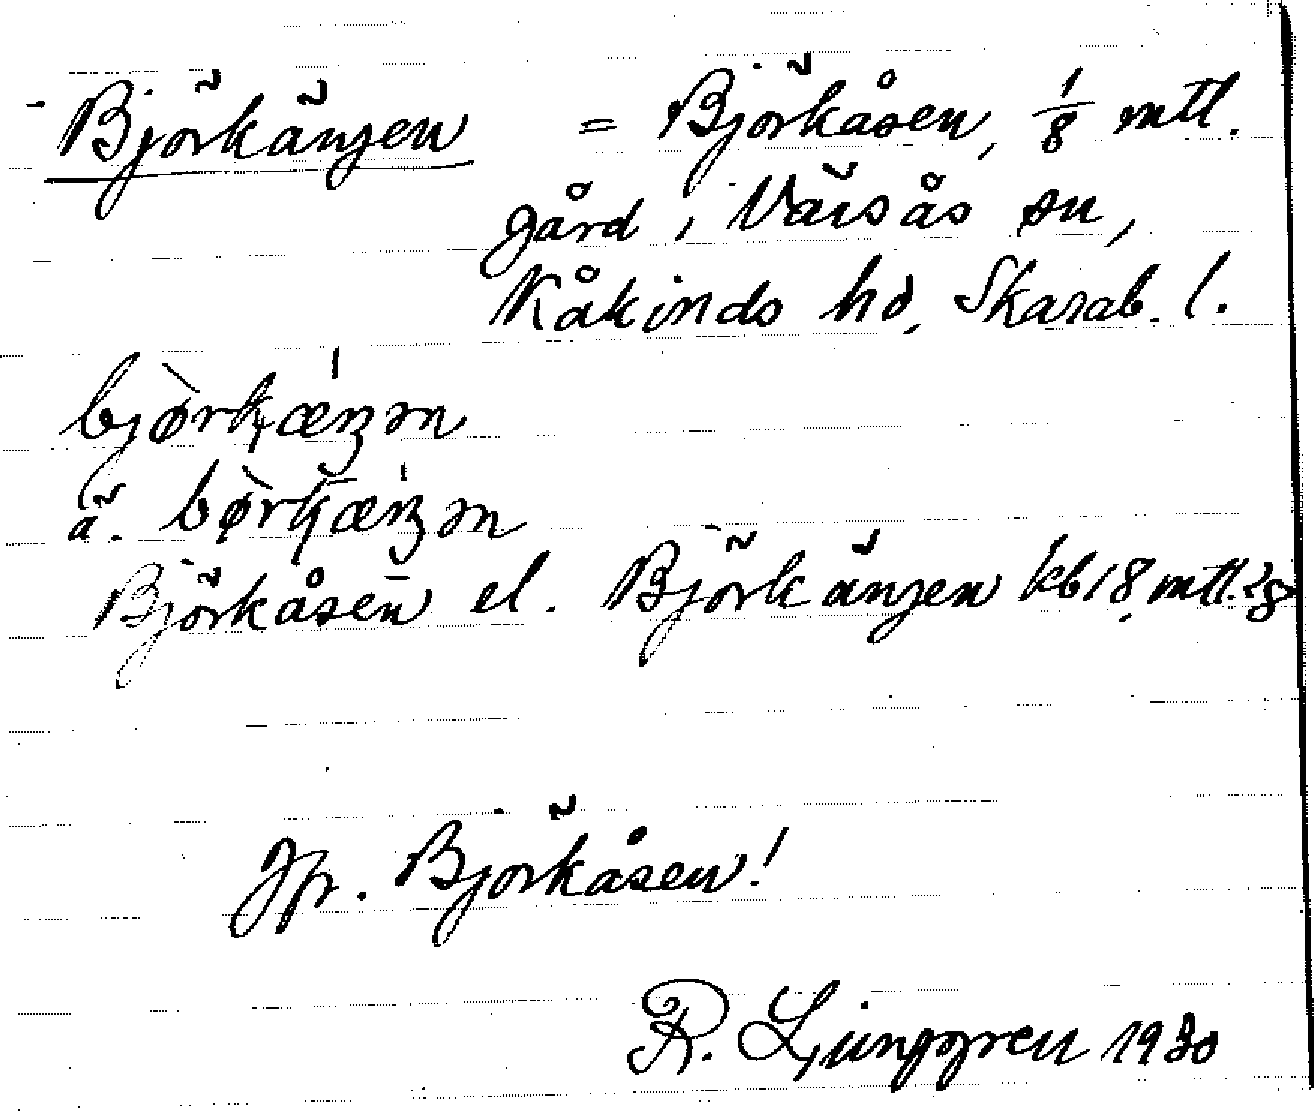 Björkängen = Björkåsen, 1/8 mtl.
gård i Värsås sn,
Kåkinds hd, Skarab. l.
bjørkæŋən
ä. børkæŋən
Björkåsen el. Björkängen kb 18. mtl. 1/8
Jfr. Björkåsen!
R. Ljunggren 1930